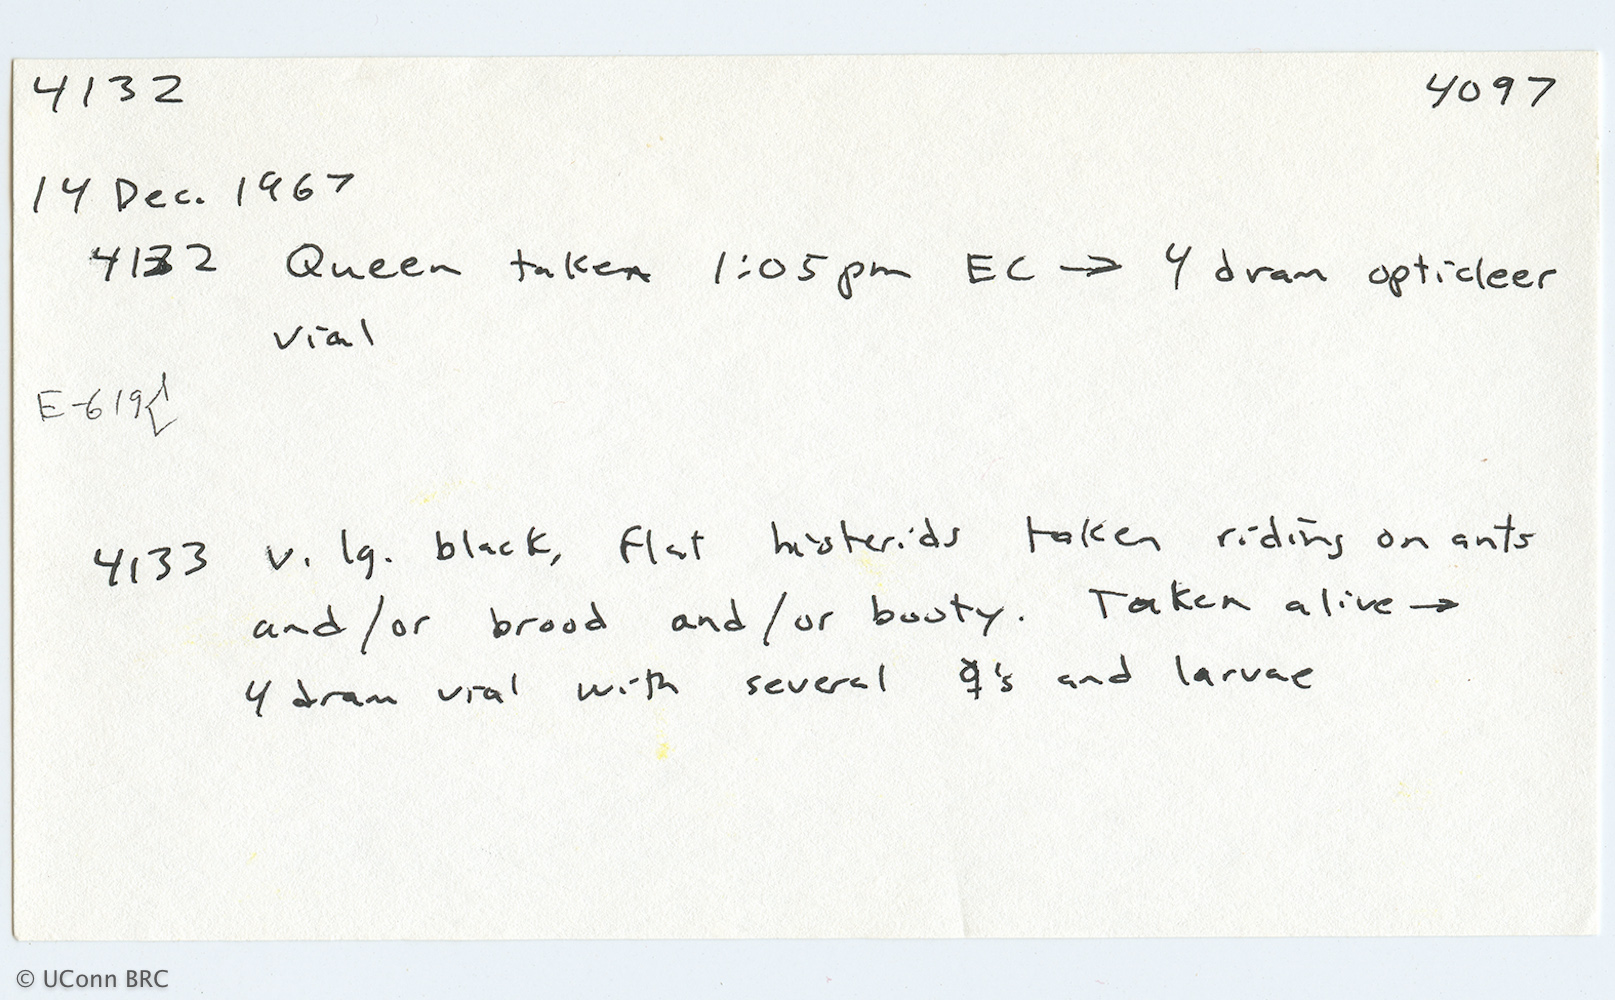 4132 4097
14 Dec. 1967
4132 Queen taken 1:05 pm EC → 4 dram opticleer
vial
E-619
4133 v. lg. black, flat histerids taken riding on ants
and/or brood and/or booty. Taken alive →
4 dram vial with several ☿'s and larvae
© UConn BRC